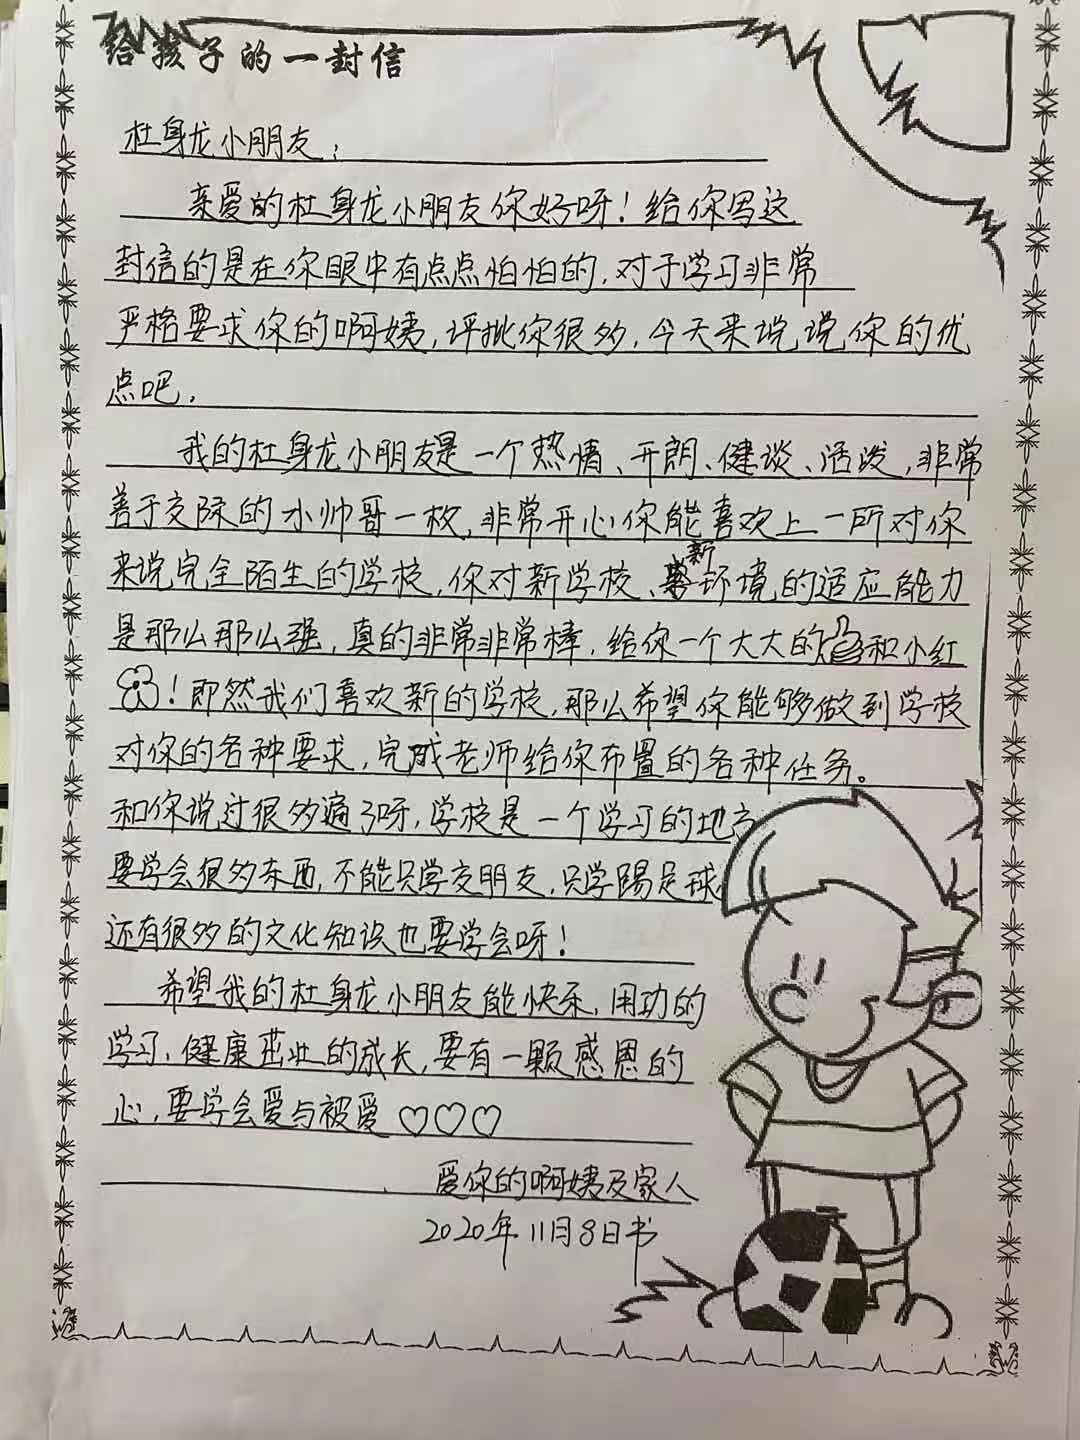 给孩子的一封信
杜身龙小朋友：
亲爱的杜身龙小朋友你好呀！给你写这
封信的是在你眼中有点点怕怕的，对于学习非常
严格要求你的啊姨，评批你很多，今天来说说你的优
点吧，
我的杜身龙小朋友是一个热情、开朗、健谈、活泼，非常
善于交际的小帅哥一枚，非常开心你能喜欢上一所对你
来说完全陌生的学校，你对新学校、新环境的适应能力
是那么那么强，真的非常非常棒，给你一个大大的和小红
！即然我们喜欢新的学校，那么希望你能够做到学校
对你的各种要求，完成老师给你布置的各种任务。
和你说过很多遍了呀，学校是一个学习的地方
要学会很多东西，不能只学交朋友，只学踢足球
还有很多的文化知识也要学会呀！
希望我的杜身龙小朋友能快乐，用功的
学习，健康茁壮的成长，要有一颗感恩的
心，要学会爱与被爱♡♡♡
爱你的啊姨及家人
2020年11月8日书